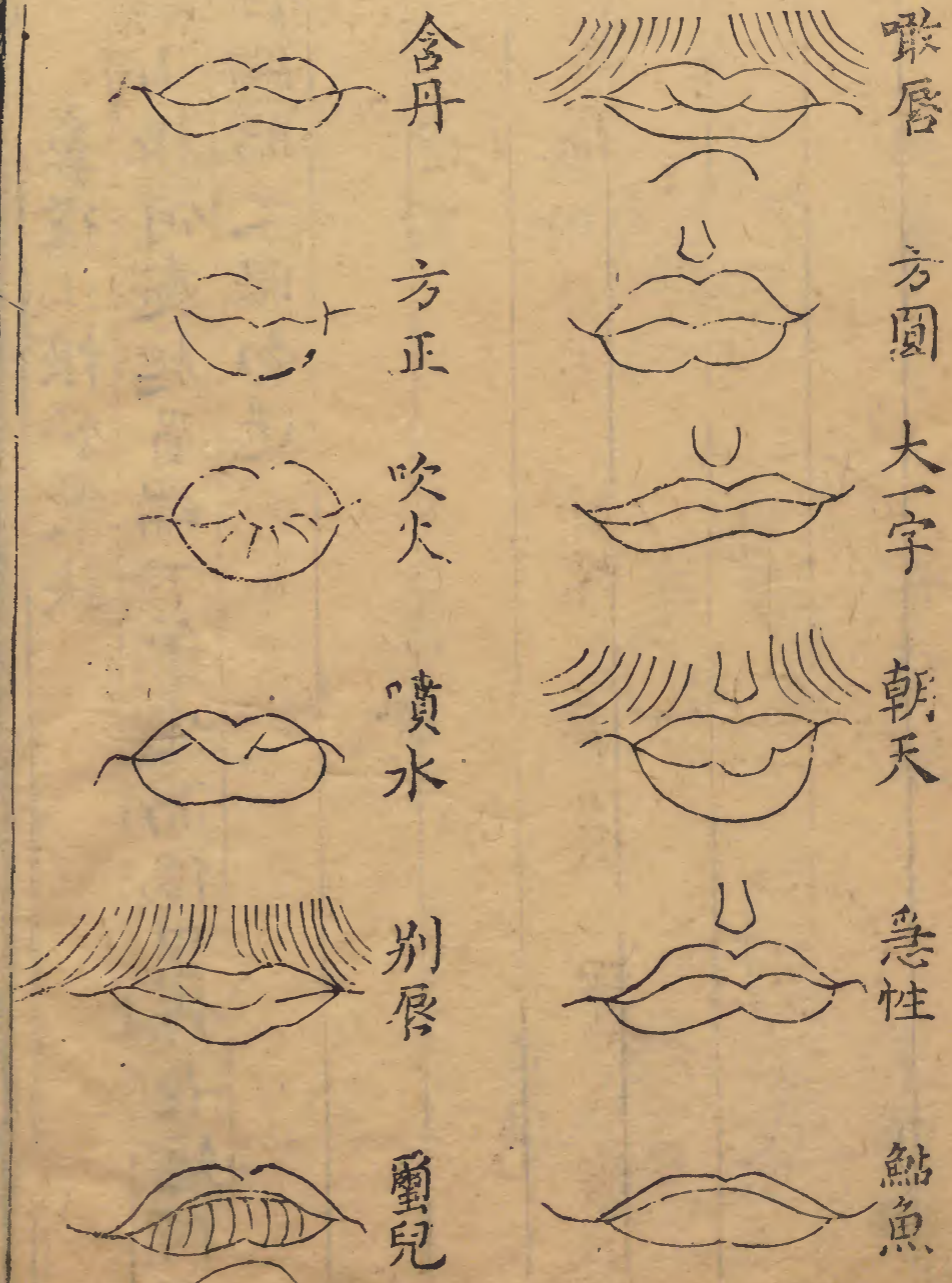 噉唇
方圓
大一字
朝天
急性
鮎魚
含丹
方正
吹火
噴水
別唇